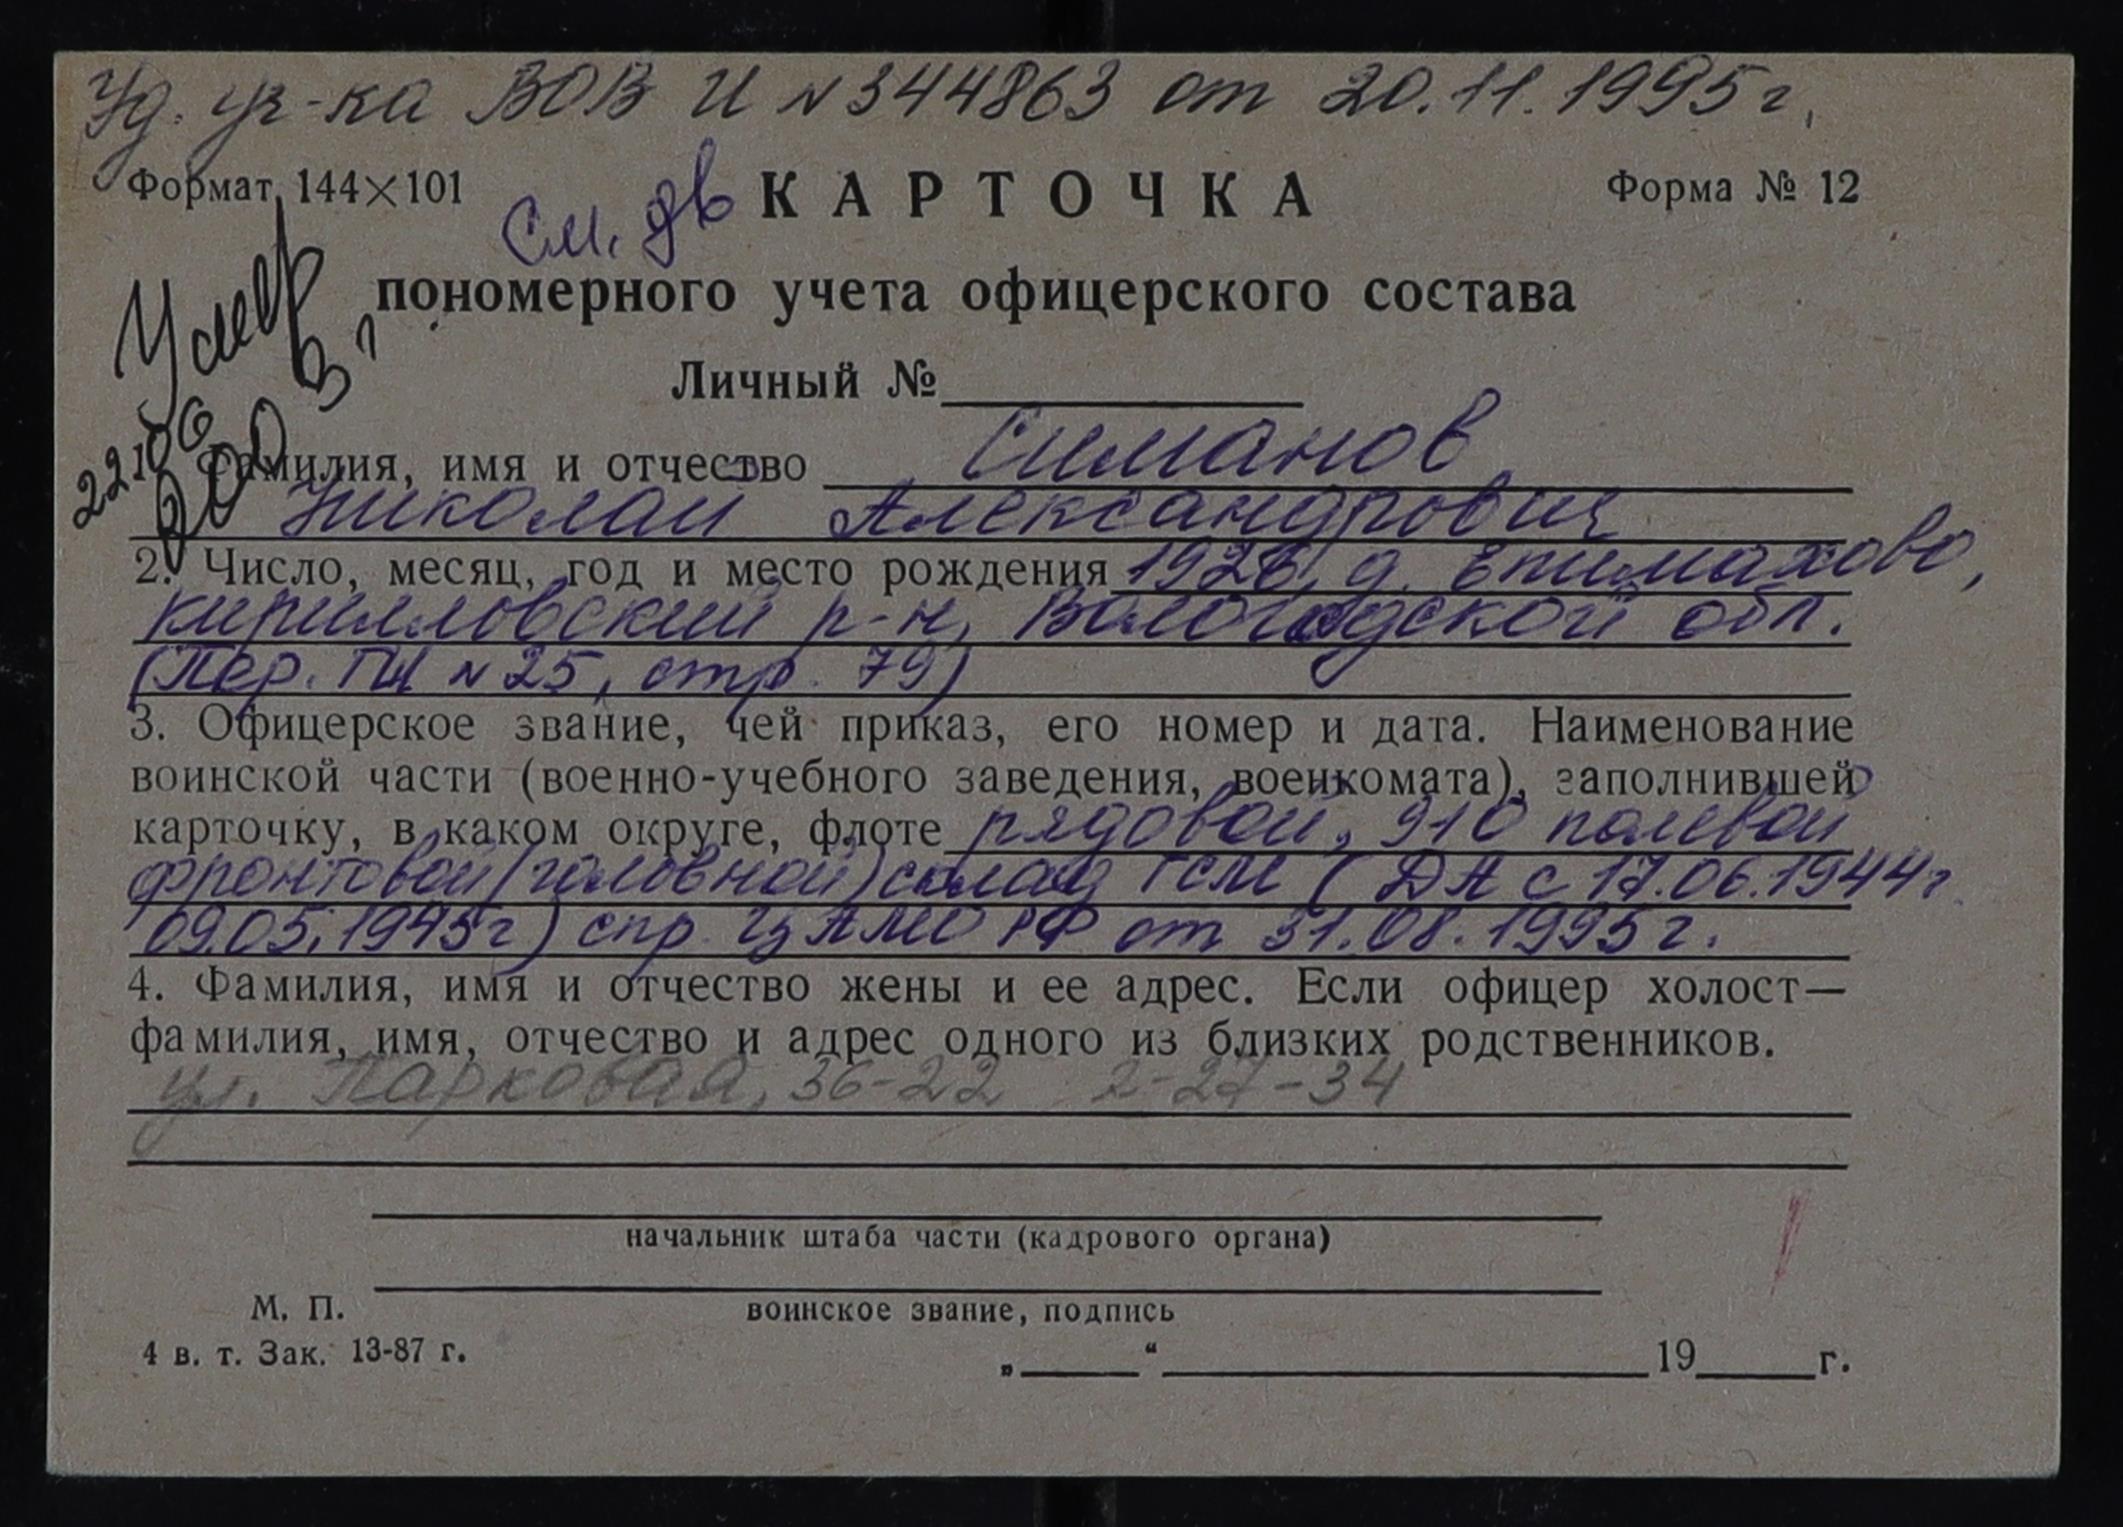 Уд. уч-ка ВОВ И N 344863 от 20.11.1995г.
Формат 144×101
см. дв
КАРТОЧКА
Форма № 12
Умер
пономерного учета офицерского состава
Личный №
22106
Фамилия, имя и отчество Симанов
Николай Александрович
2. Число, месяц, год и место рождения 1926, д. Епимахово,
Кирилловский р-н, Вологодской обл.
(Пер. ГЩ N 25, стр. 79)
3. Офицерское звание, чей приказ, его номер и дата. Наименование
воинской части (военно-учебного заведения, военкомата), заполнившей
карточку, в каком округе, флоте рядовой, 910 полевой
фронтовой (головной) склад ГСМ (ДА с 17.06.1944г
09.05.1945г) спр. ЦАМО РФ от 31.08.1995г.
4. Фамилия, имя и отчество жены и ее адрес. Если офицер холост—
фамилия, имя, отчество и адрес одного из близких родственников.
ул. Парковая, 36-22 2-27-34
начальник штаба части (кадрового органа)
М. П.
воинское звание, подпись
4 в. т. Зак. 13-87 г.
„ “ 19 г.